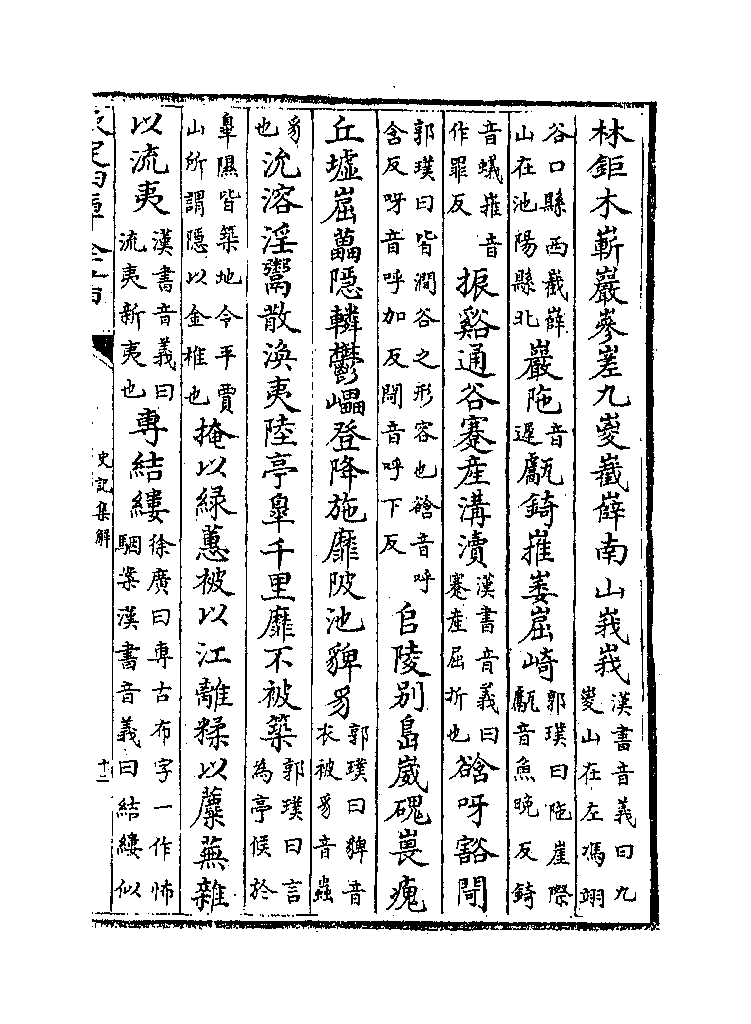 林鉅木嶄巖㟥嵳九嵏巀嶭南山峩峩漢書音義曰九嵏山在左馮翊
谷口縣西巀嶭山在池陽縣北巖陁音遲甗錡摧崣崛崎郭璞曰陁崖際甗音魚晚反錡
音蟻摧音作罪反振谿通谷蹇産溝瀆漢書音義曰蹇産屈折也谽呀豁閜
郭璞曰皆澗谷之形容也谽音呼含反呀音呼加反閜音呼下反𨸏陵别島崴磈㟪瘣
丘墟崫藟隱轔鬱㠥登降施靡陂池貏豸郭璞曰貏音衣被豸音蟲
豸也沇溶淫鬻散渙夷陸亭臯千里靡不被築郭璞曰言為亭候於
臯隰皆築地令平賈山所謂隱以金椎也掩以緑蕙被以江離糅以蘪蕪雜
以流夷漢書音義曰流夷新夷也専結縷徐廣曰専古布字一作怖駰案漢書音義曰結縷似
史記集解
十二